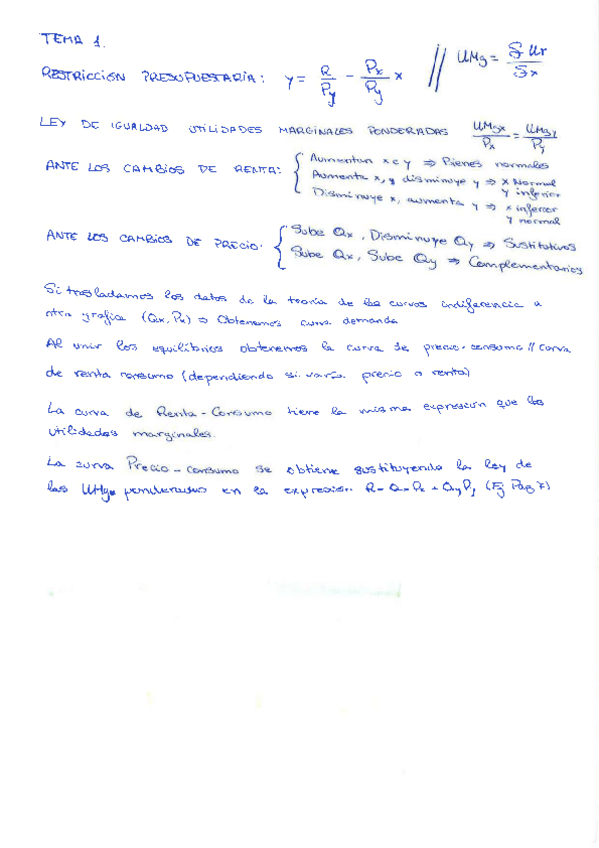 TEMA 1.
RESTRICCIÓN PRESUPUESTARIA: y = R/Py - Px/Py x // UMg = δ Ur/δ x
LEY DE IGUALDAD UTILIDADES MARGINALES PONDERADAS UMgx/Px = UMgy/Py
ANTE LOS CAMBIOS DE RENTA: { Aumentan x e y ⇒ Bienes normales
Aumenta x, y disminuye y ⇒ x Normal
y inferior
Disminuye x, aumenta y ⇒ x inferior
y normal
ANTE LOS CAMBIOS DE PRECIO. { Sube Qx, Disminuye Qy ⇒ Sustitutivos
Sube Qx, Sube Qy ⇒ Complementarios
Si trasladamos los datos de la teoría de las curvas indiferencia a
otra grafica (Qx, Px) ⇒ Obtenemos curva demanda
Al unir los equilibrios obtenemos la curva de precio-consumo // curva
de renta consumo (dependiendo si varía precio o renta)
La curva de Renta-Consumo tiene la misma expresión que las
utilidades marginales.
La curva Precio-consumo se obtiene sustituyendo la ley de
las UMgs ponderadas en la expresión R = Qx Px + Qy Py (Ej Pag 7)